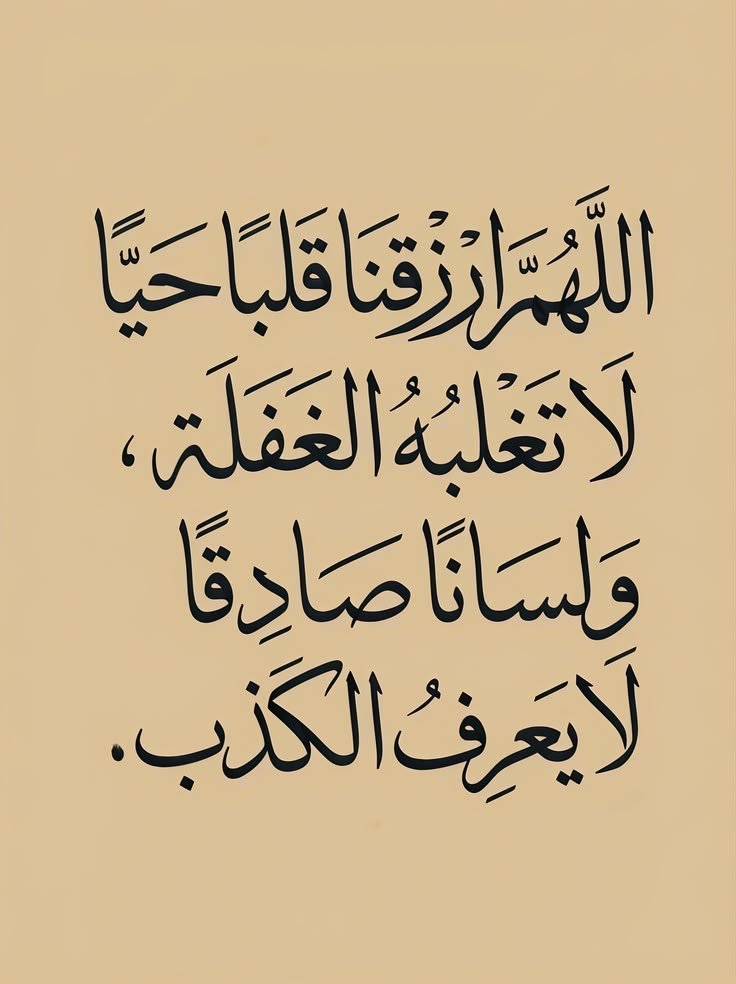 اللَّهُمَّ ارْزْقنَا قَلبًا حَيًّا
لَا تَغْلبُهُ الغَفَلَة ،
وَلسَانًا صَادِقًا
لَا يَعَرِفُ الكَذب .